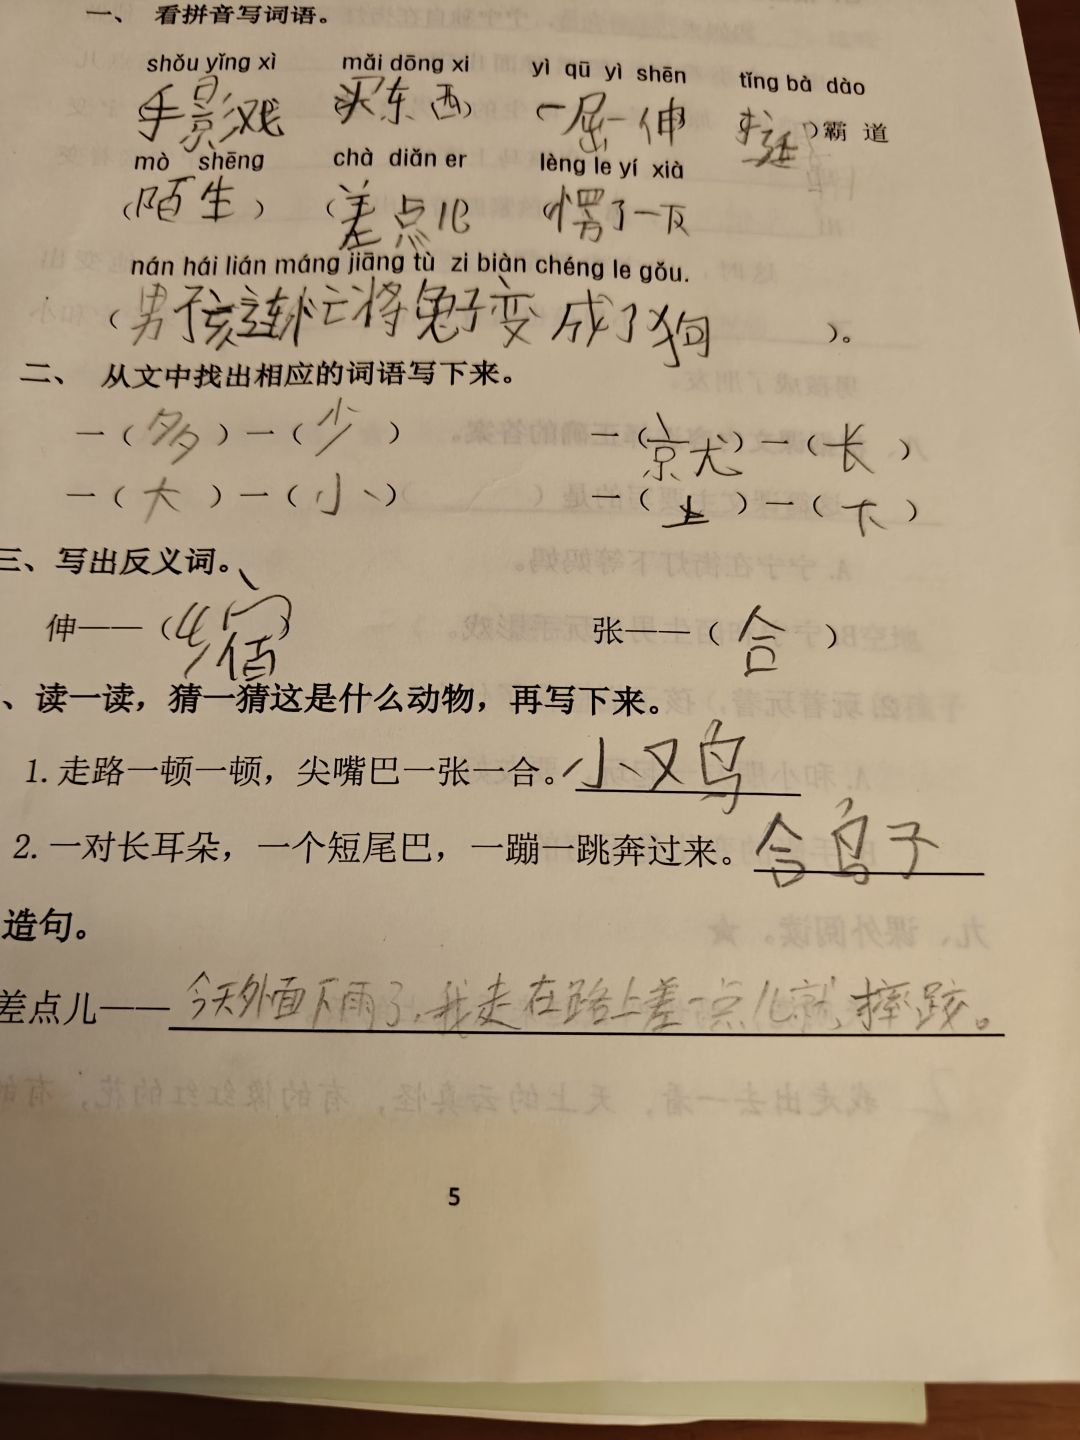 一、 看拼音写词语。
shǒu yǐng xì mǎi dōng xi yì qū yì shēn tǐng bà dào
手影戏 (买东西) (一屈一伸) (挺)霸 道
mò shēng chà diǎn er lèng le yí xià
(陌生) (差点儿 (愣了一下
nán hái lián máng jiāng tù zi biàn chéng le gǒu.
(男孩连忙将兔子变成了狗 )。
二、 从文中找出相应的词语写下来。
一(多)一(少) 一(就)一(长)
一(大)一(小) 一(上)一(下)
三、写出反义词。
伸——(缩) 张——(合)
、读一读，猜一猜这是什么动物，再写下来。
1.走路一顿一顿，尖嘴巴一张一合。小鸡
2.一对长耳朵，一个短尾巴，一蹦一跳奔过来。鸽子
造句。
差点儿——今天外面下雨了，我走在路上差一点儿就摔跤。
5